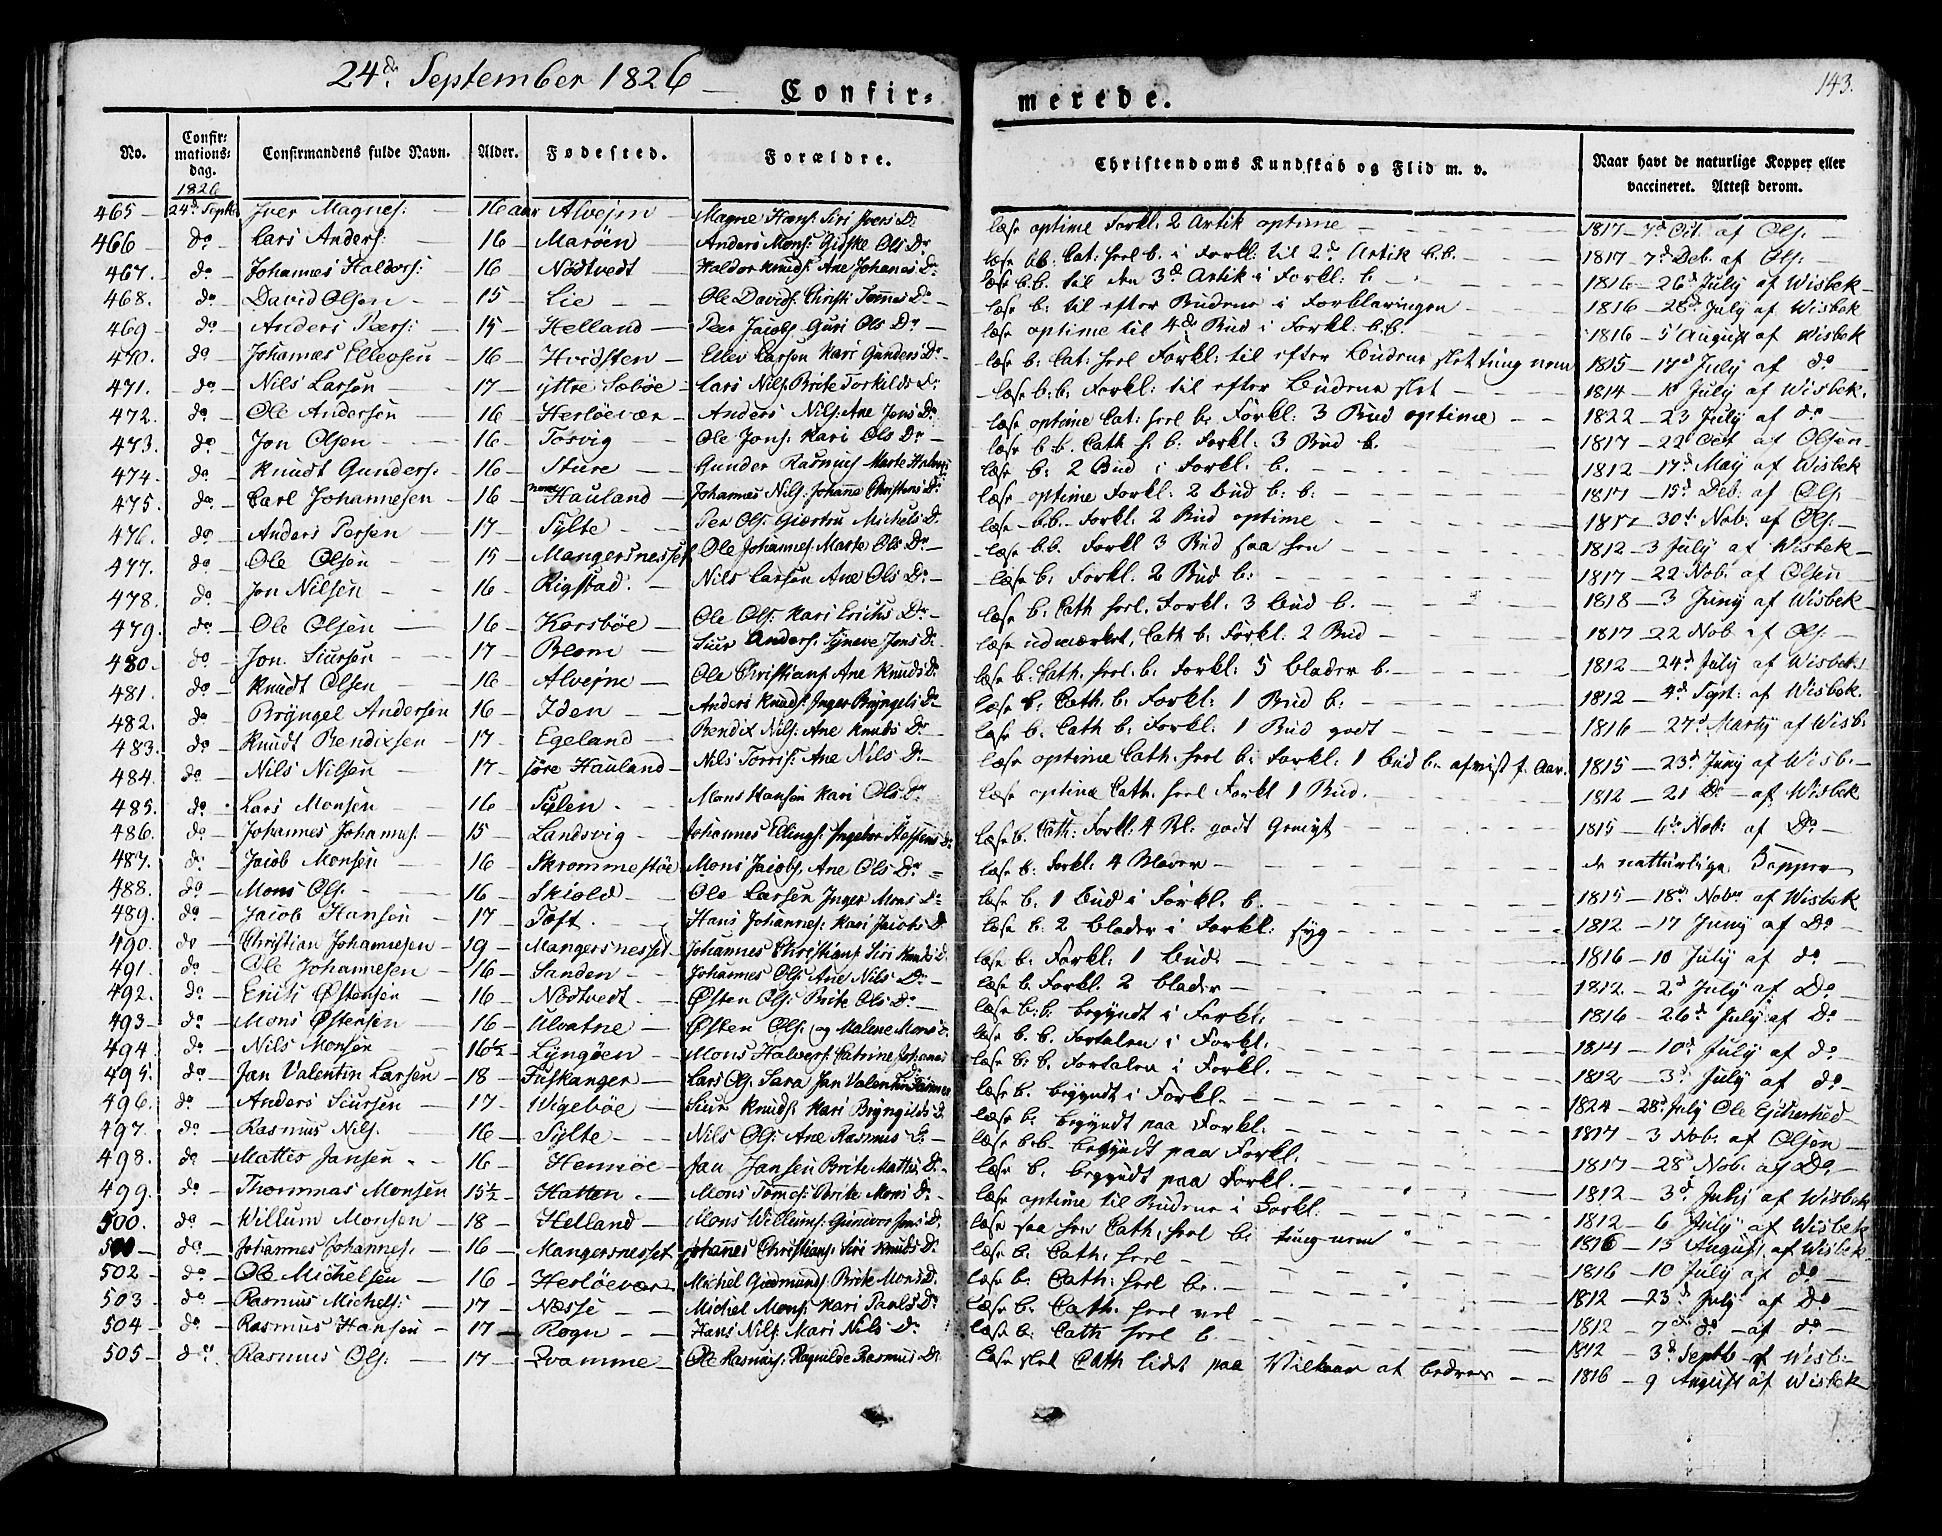 24de September 1826
143.
Confir= merede.
No. Confir=mations=dag. 1826 Confirmandens fulde Navn. Alder. Fødested. Forældre. Christendoms Kundskab og Flid m. v. Naar havt de naturlige Kopper eller vaccineret. Attest derom.
465 – 24d Septb Iver Magnes: 16 aar Alvejm – Magne Hans: Siri Ivers Dr læse optime Forkl: 2 Artik optime – 1817 – 7d Oct. af Ols: –
466 – do – Lars Anders: – 16 – Marøen – Anders Mons: Gidske Ols Dr læse bb. Cat: heel b. i Forkl: til 2d Artik b.b. – 1817 – 7d Deb. af Ols: –
467. – do – Johannes Haldors: 16 – Nødtvedt – Haldor Knuds: Ane Johanes Dr læse b.b. til den 3d Artik i Forkl: b – 1816 – 26d July af Wisbek –
468. – do – David Olsen – 15 – Lie – Ole Davids: Christi Tømes Dr – læse b: til efter Budene i Forklaringen – 1816 – 28d July af Wisbek
469 – do – Anders Peers: – 15 – Helland – Peer Jacobs: Guri Ols Dr – læse optime til 4de Bud i Forkl: b.b. – 1816 – 5 August af Wisbek
470. – do – Johannes Ellevsen – 16 – Hvidsten – Ellev Larsen Kari Gunders Dr – læse b: Cat: heel Forkl: til efter Budene slet tung nem 1815 – 17d July af do –
471. – do – Nils Larsen – 17 – yttre Sæbøe – Lars Nils: Brite Torkilds Dr – læse b:b: Forkl: til efter Budene slet – 1814 – 1d July af Wisbek.
472. – do – Ole Andersen – 16 – Herløevær – Anders Nils: Ane Jons Dr læse optime Cat: heel b: Forkl: 3 Bud optime – 1822 – 23 July af do –
473. – do – Jon Olsen – 16 – Tosvig – Ole Jons: Kari Ols Dr – læse b.b. Cath h. b. Forkl: 3 Bud b. 1817 – 22 Oct af Olsen –
474. – do – Knudt Gunders: – 16 – Sture – Gunder Rasmus: Marte læse b: 2 Bud i Forkl: b. – 1812 – 17d May af Wisbek
475. – do – Carl Johannesen – 16 – Hauland – Johannes Nils: Johanne Christens Dr læse optime Forkl: 2 Bud b: b: – 1817 – 15d Deb: af Ols: –
476. – do – Anders Persen – 17 – Sylte – Per Ols: Giertru Michels D. læse – b.b. – Forkl: 2 Bud optime – 30d Nob. af Ols: –
477. – do – Ole Olsen – 15 – Mangersnesset Ole Johannes: Marte Ols Dr – læse b.b. Forkl 3 Bud saa hen – 1812 – 3 July af Wisbek –
478. – do – Jon Nilsen – 16 – Rigstad. – Nils Larsen Ane Ols Dr – læse b: Forkl. 2 Bud b: – 1817 – 22 Nob: af Olsen –
479. – do – Ole Olsen – 16 – Korsbøe – Ole Ols: Kari Erichs Dr – læse b: Cath heel. Forkl: 3 Bud b. – 1818 – 3 Juny af Wisbek –
480. – do – Jon Siursen – 17 – Blom – Siur Anders: Syneve Jons Dr læse udmærket, Cath b: Forkl: 2 Bud – 1817 – 22 Nob. af Ols: –
481. – do – Knudt Olsen – 16 – Alvejne – Ole Christians: Ane Knuds Dr læse b: Cath. heel. b: Forkl: 5 Blader b. – 1812 – 24d July af Wisbek
482. – do – Bryngel Andersen 16 – Iden – Anders Knuds: Inger Bryngels Dr læse b: Cath. b: Forkl: 1 Bud b: – 1812 – 4d Sept: af Wisbek.
483. – do – Knudt Bendixsen – 17 – Egeland – Bendix Nils: Ane Knuds Dr – læse b: Cath b: Forkl: 1 Bud godt – 1816 – 27d Marty af Wisb:
484. – do – Nils Nilsen – 17 – søre Hauland – Nils Torris: Ane Nils Dr – læse optime Cath: heel b: Forkl: 1 Bud b. afvist f. Aar. 1815 – 23d Juny af Wisb. –
485. – do – Lars Monsen – 16 – Sylen. – Mons Hansen Kari Ols Dr læse optime Cath: heel Forkl 1 Bud. – 1812 – 21 Do – af Wisbek
486. – do – Johannes Johannes: – 15 – Landsvig – Johannes Ellings: Ingebor Steffens Dr læse b. Cath: Forkl: 4 Bl. godt Gemyt – 1815 – 6te Nob: af Do –
487. – do – Jacob Monsen – 16 – Skrommestøe – Mons Jacobs: Ane Ols Dr – læse b: Forkl: 4 Blader – de natturlige Kopper
488. – do – Mons Ols: – 16 – Skiold – Ole Larsen Inger Mons Dr læse b: 1 Bud i Forkl: b. – 1815 – 18d Nobr af Wisbek
489. – do – Jacob Hansen – 17 – Toft. – Hans Johannes: Kari Jacobs Dr læse b: 2 blader i Forkl: syg – 1812 – 17 Juny af Do –
490. – do – Christian Johannesen – 19 – Mangersnesset – Johannes Christians: Siri Knuds D. læse b: Forkl: 1 Bud. – 1816 – 10 July af do –
491. – do – Ole Johannesen – 16 – Sanden – Johannes Ols: Ane Nils Dr – læse b. Forkl: 2 blader – 1812 – 2d July af Do –
492. – do – Erich Østensen – 16 – Nødtvedt – Østen Ols: Brite Ols Dr – læse b:b: begyndt i Forkl: – 1816 – 26d July af Do –
493 – do – Mons Østensen 16 – Ulvatne – Østen Ols: og Malene Mons D. læse b. b. Fortalen i Forkl: – 1814 – 10d July af do –
494. – do – Nils Monsen – 16½ – Lyngøen – Mons Halvers: Catrine Johanes læse b: b. Fortalen i Forkl. – 1812 – 3d July af do –
495. – do – Jan Valentin Larsen – 18 – Friskanger – Lars Ols: Sara Jan Valentin læse b. begyndt i Forkl. – 1824 – 28d July Ole
496. – do – Anders Siursen – 17 – Vigebøe – Siur Knuds: Kari Bryngilds D. læse b. begyndt paa Forkl: – 1817 – 3 Nob: af Olsen –
497. – do – Rasmus Nils: 16 – Sylte – Nils Ols: Ane Rasmus D. – læse b.b. begyndt paa Forkl. – 1817 – 28d Nob: af Do –
498. – do – Mattis Jansen – 16 – Hennøe – Jan Jansen Brite Mattis: Dr – læse b. begyndt paa Forkl. – 1812 – 3d July af Wisbek
499. – do – Thommas Monsen 15½ – Hatten. – Mons Tomes: Brite Mons Dr – læse optime til Budene i Forkl: – 1812 – 6 July af Wisbek
500. – do – Willum Monsen – 18 – Helland – Mons Willums: Jons D. læse saa hen Cath: heel b: tung-nem – 1816 – 15 August af Wisbek
– do – Johannes Johannes: – 16 – Mangersnesset Johannes Christians: Siri Knuds D. læse b: Cath: heel – 1816 – 10 July af do –
502 – do – Ole Michelsen – 16 – Herløevær Michel Gudmunds: Brite Mons D. læse b: Cath: heel b: – 1812 – 23d July af Do –
503 – do – Rasmus Michels: – 17 – Næsse – Michel Mons: Kari Pauls Dr læse b: Cath: heel vel – 1812 – 7d do – af do –
504 – do – Rasmus Hansen – 17 – Rogn – Hans Nils: Mari Nils Dr læse b: Cath heel b – 1812 – 3d Septb af Wisb: –
505 – do – Rasmus Ols: – 17 – Qvamme – Ole Rasmus: Ragnilde Rasmus D. læse slet Cath lidet paa Vilkaar at bedres – 1816 – 9 August af Wisbek